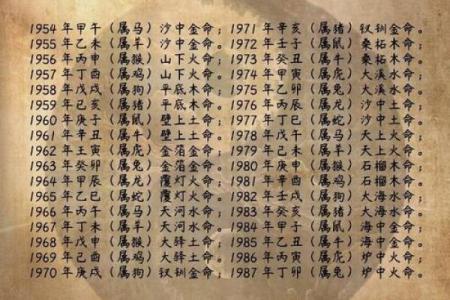 1954年甲午（属马）沙中金命；1971年辛亥（属猪）钗钏金命。
1955年乙未（属羊）沙中金命；1972年壬子（属鼠）桑柘木命。
1956年丙申（属猴）山下火命；1973年癸丑（属牛）桑柘木命。
1957年丁酉（属鸡）山下火命；1974年甲寅（属虎）大溪水命。
1958年戊戌（属狗）平底木命；1975年乙卯（属兔）大溪水命。
1959年己亥（属猪）平底木命；1976年丙辰（属龙）沙中土命。
1960年庚子（属鼠）壁上土命；1977年丁巳（属蛇）沙中土命。
1961年辛丑（属牛）壁上土命；1978年戊午（属马）天上火命。
1962年壬寅（属虎）金箔金命；1979年己未（属羊）天上火命。
1963年癸卯（属兔）金箔金命；1980年庚申（属猴）石榴木命。
1964年甲辰（属龙）覆灯火命；1981年辛酉（属鸡）石榴木命。
1965年乙巳（属蛇）覆灯火命；1982年壬戌（属狗）大海水命。
1966年丙午（属马）天河水命；1983年癸亥（属猪）大海水命。
1967年丁未（属羊）天河水命；1984年甲子（属鼠）海中金命。
1968年戊申（属猴）大驿土命；1985年乙丑（属牛）海中金命。
1969年己酉（属鸡）大驿土命；1986年丙寅（属虎）炉中火命。
1970年庚戌（属狗）钗钏金命；1987年丁卯（属兔）炉中火命。